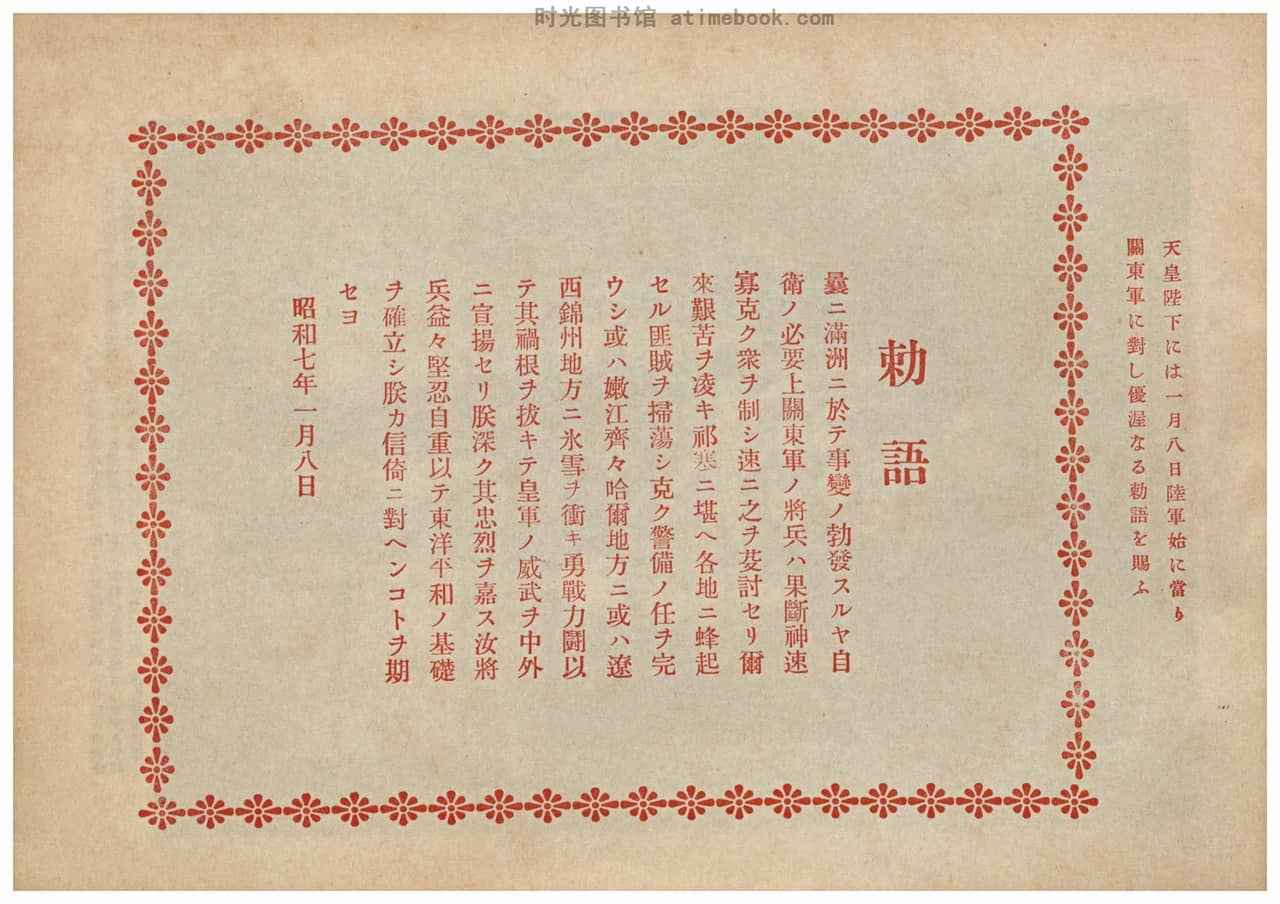 时光图书馆 atimebook.com
天皇陛下には一月八日陸軍始に當り
關東軍に對し優渥なる勅語を賜ふ
勅語
曩ニ滿洲ニ於テ事變ノ勃發スルヤ自
衞ノ必要上關東軍ノ將兵ハ果斷神速
寡克ク衆ヲ制シ速ニ之ヲ芟討セリ爾
來艱苦ヲ凌キ祁寒ニ堪ヘ各地ニ蜂起
セル匪賊ヲ掃蕩シ克ク警備ノ任ヲ完
ウシ或ハ嫩江齊々哈爾地方ニ或ハ遼
西錦州地方ニ氷雪ヲ衝キ勇戰力鬪以
テ其禍根ヲ拔キテ皇軍ノ威武ヲ中外
ニ宣揚セリ朕深ク其忠烈ヲ嘉ス汝將
兵益々堅忍自重以テ東洋平和ノ基礎
ヲ確立シ朕カ信倚ニ對ヘンコトヲ期
セヨ
昭和七年一月八日